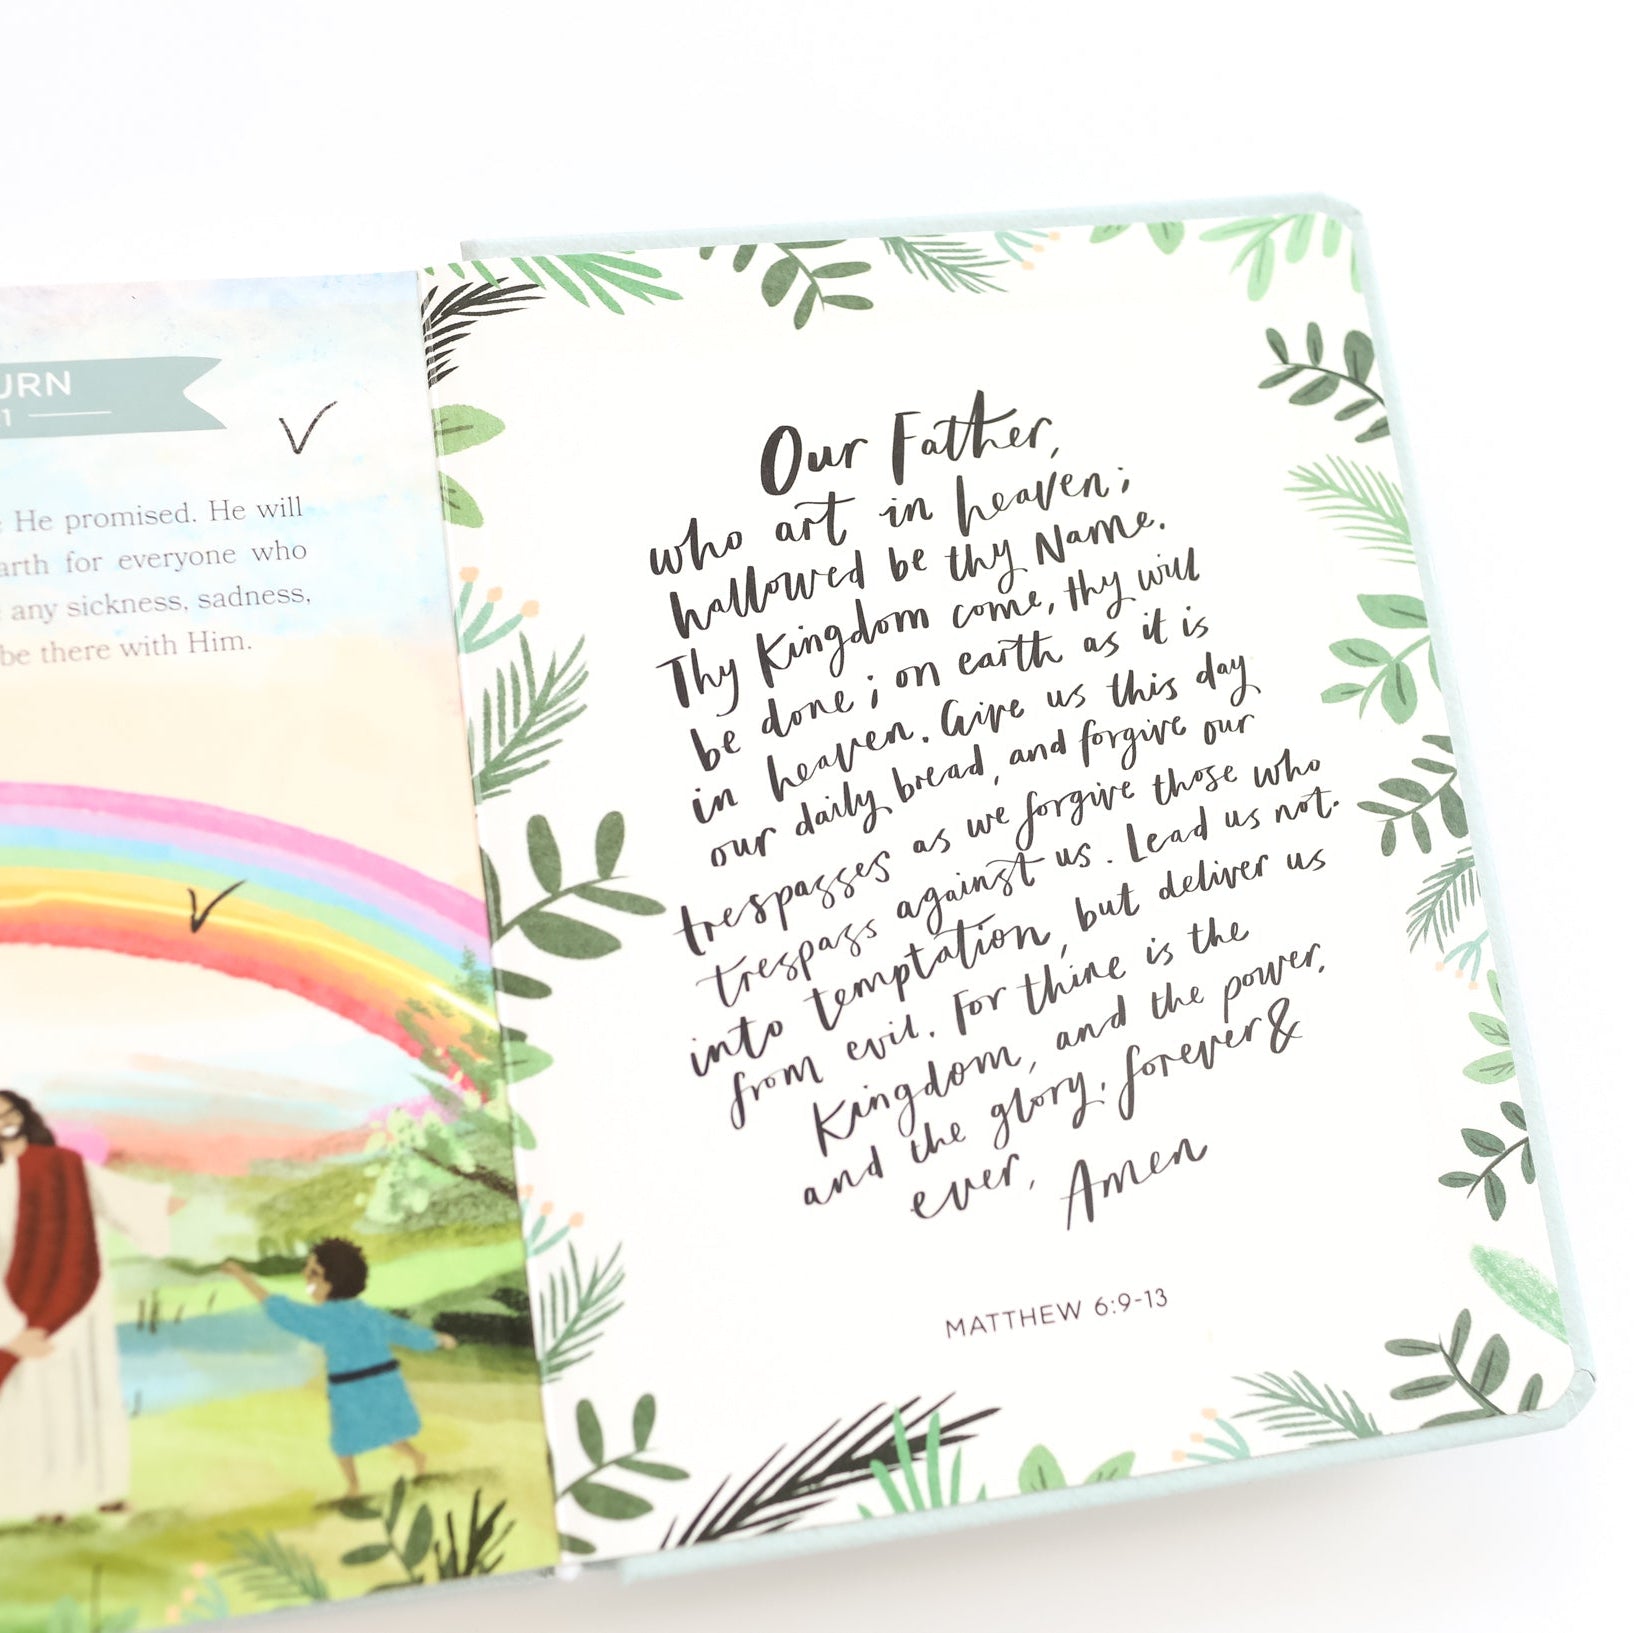 URN
1
He promised. He will
arth for everyone who
any sickness, sadness,
be there with Him.
Our Father,
who art in heaven;
hallowed be thy Name.
Thy Kingdom come, thy will
be done; on earth as it is
in heaven. Give us this day
our daily bread, and forgive our
trespasses as we forgive those who
trespass against us. Lead us not
into temptation, but deliver us
from evil. For thine is the
Kingdom, and the power,
and the glory, forever &
ever, Amen
MATTHEW 6:9-13